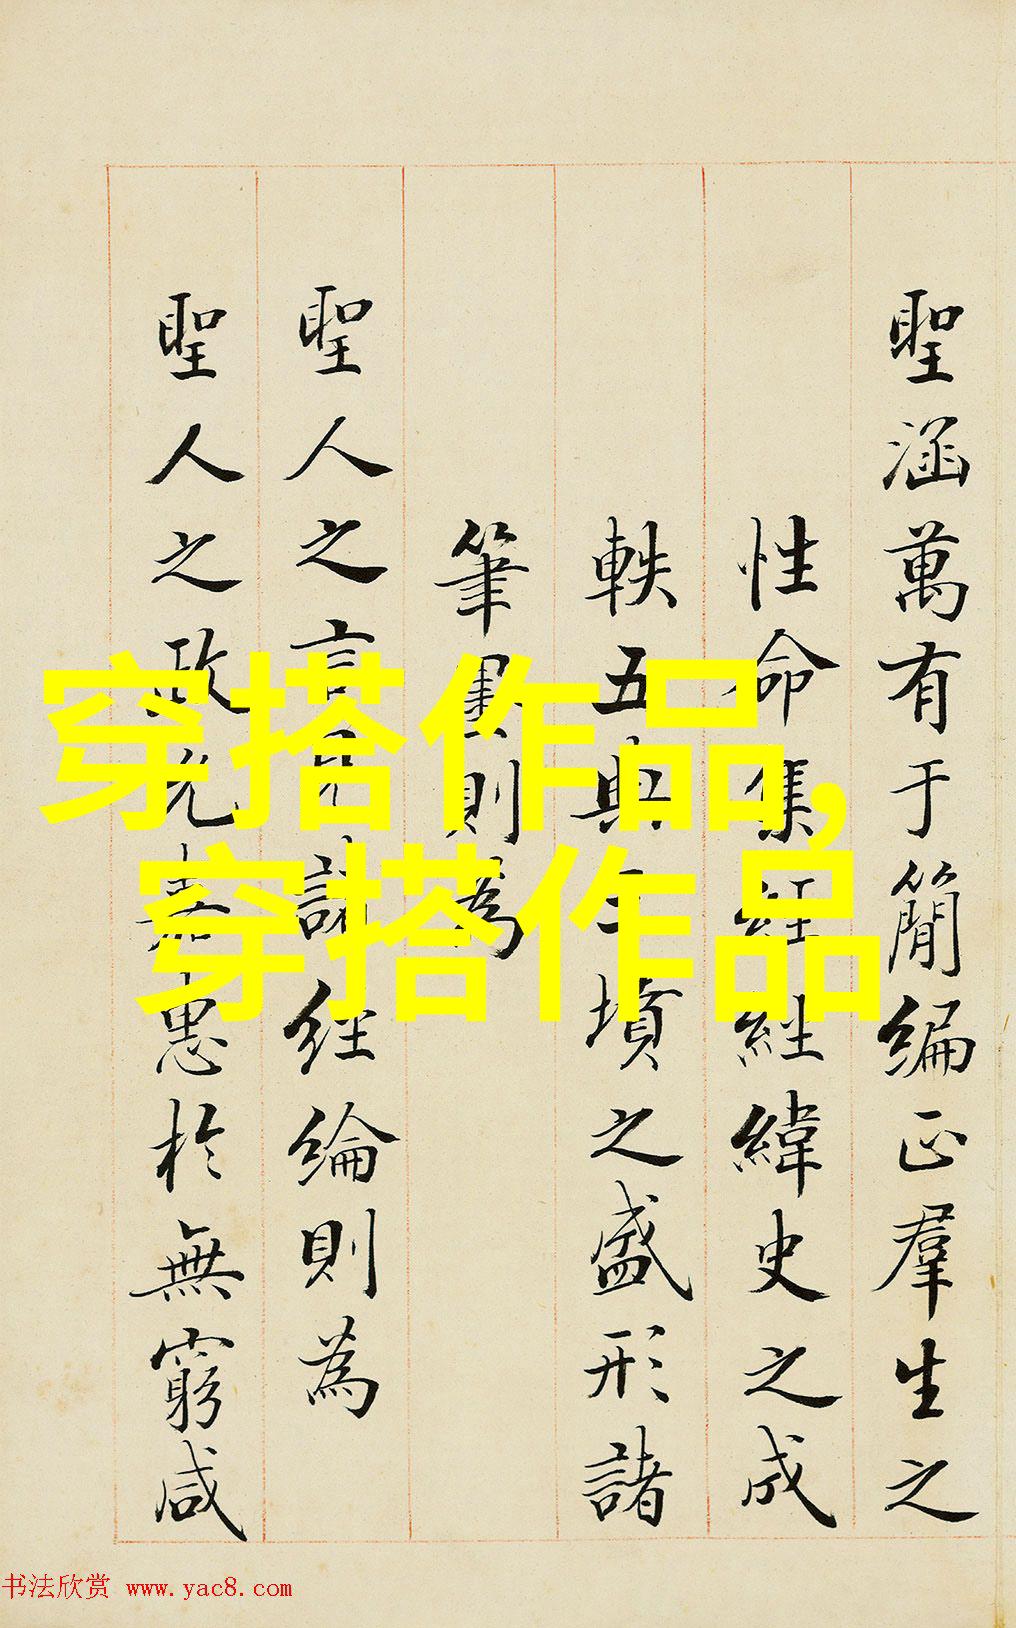 聖涵萬有于簡編正羣生之
性命集經緯史之成
軼五典三墳之盛形諸
筆則為
聖人之言見諸經綸則為
聖人之政嘉惠於無窮咸
穿搭作品,
穿搭作品
书法欣赏 www.yac8.com